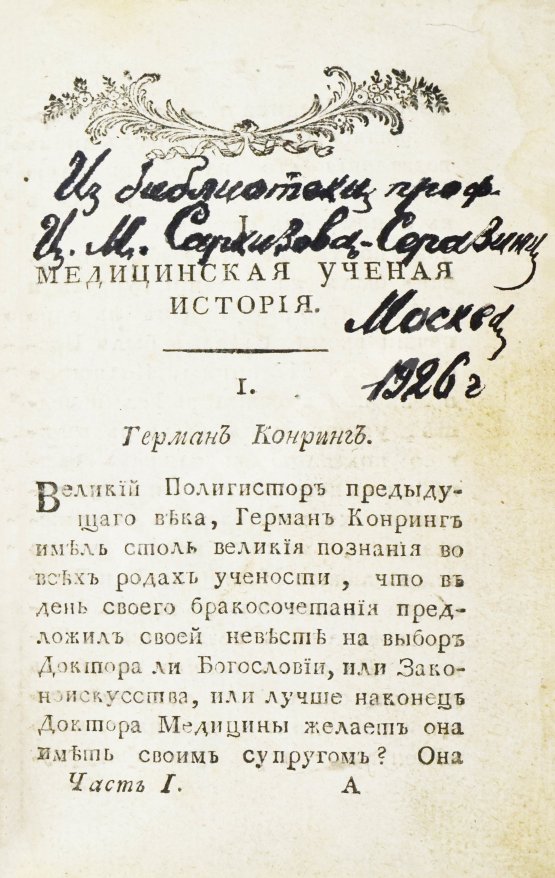 Из библиотеки проф.
I.
И. М. Саркизова-Серазини
МЕДИЦИНСКАЯ УЧЕНАЯ
ИСТОРІЯ.
Москва
1926 г
I.
Германъ Конрингъ.
Великій Полигисторъ предыду-
щаго вѣка, Германъ Конрингъ
имѣлъ столь великія познанія во
всѣхъ родахъ учености, что въ
день своего бракосочетанія пред-
ложилъ своей невѣстѣ на выборъ
Доктора ли Богословіи, или Зако-
ноискусства, или лучше наконецъ
Доктора Медицины желаетъ она
имѣть своимъ супругомъ? Она
Часть I. А